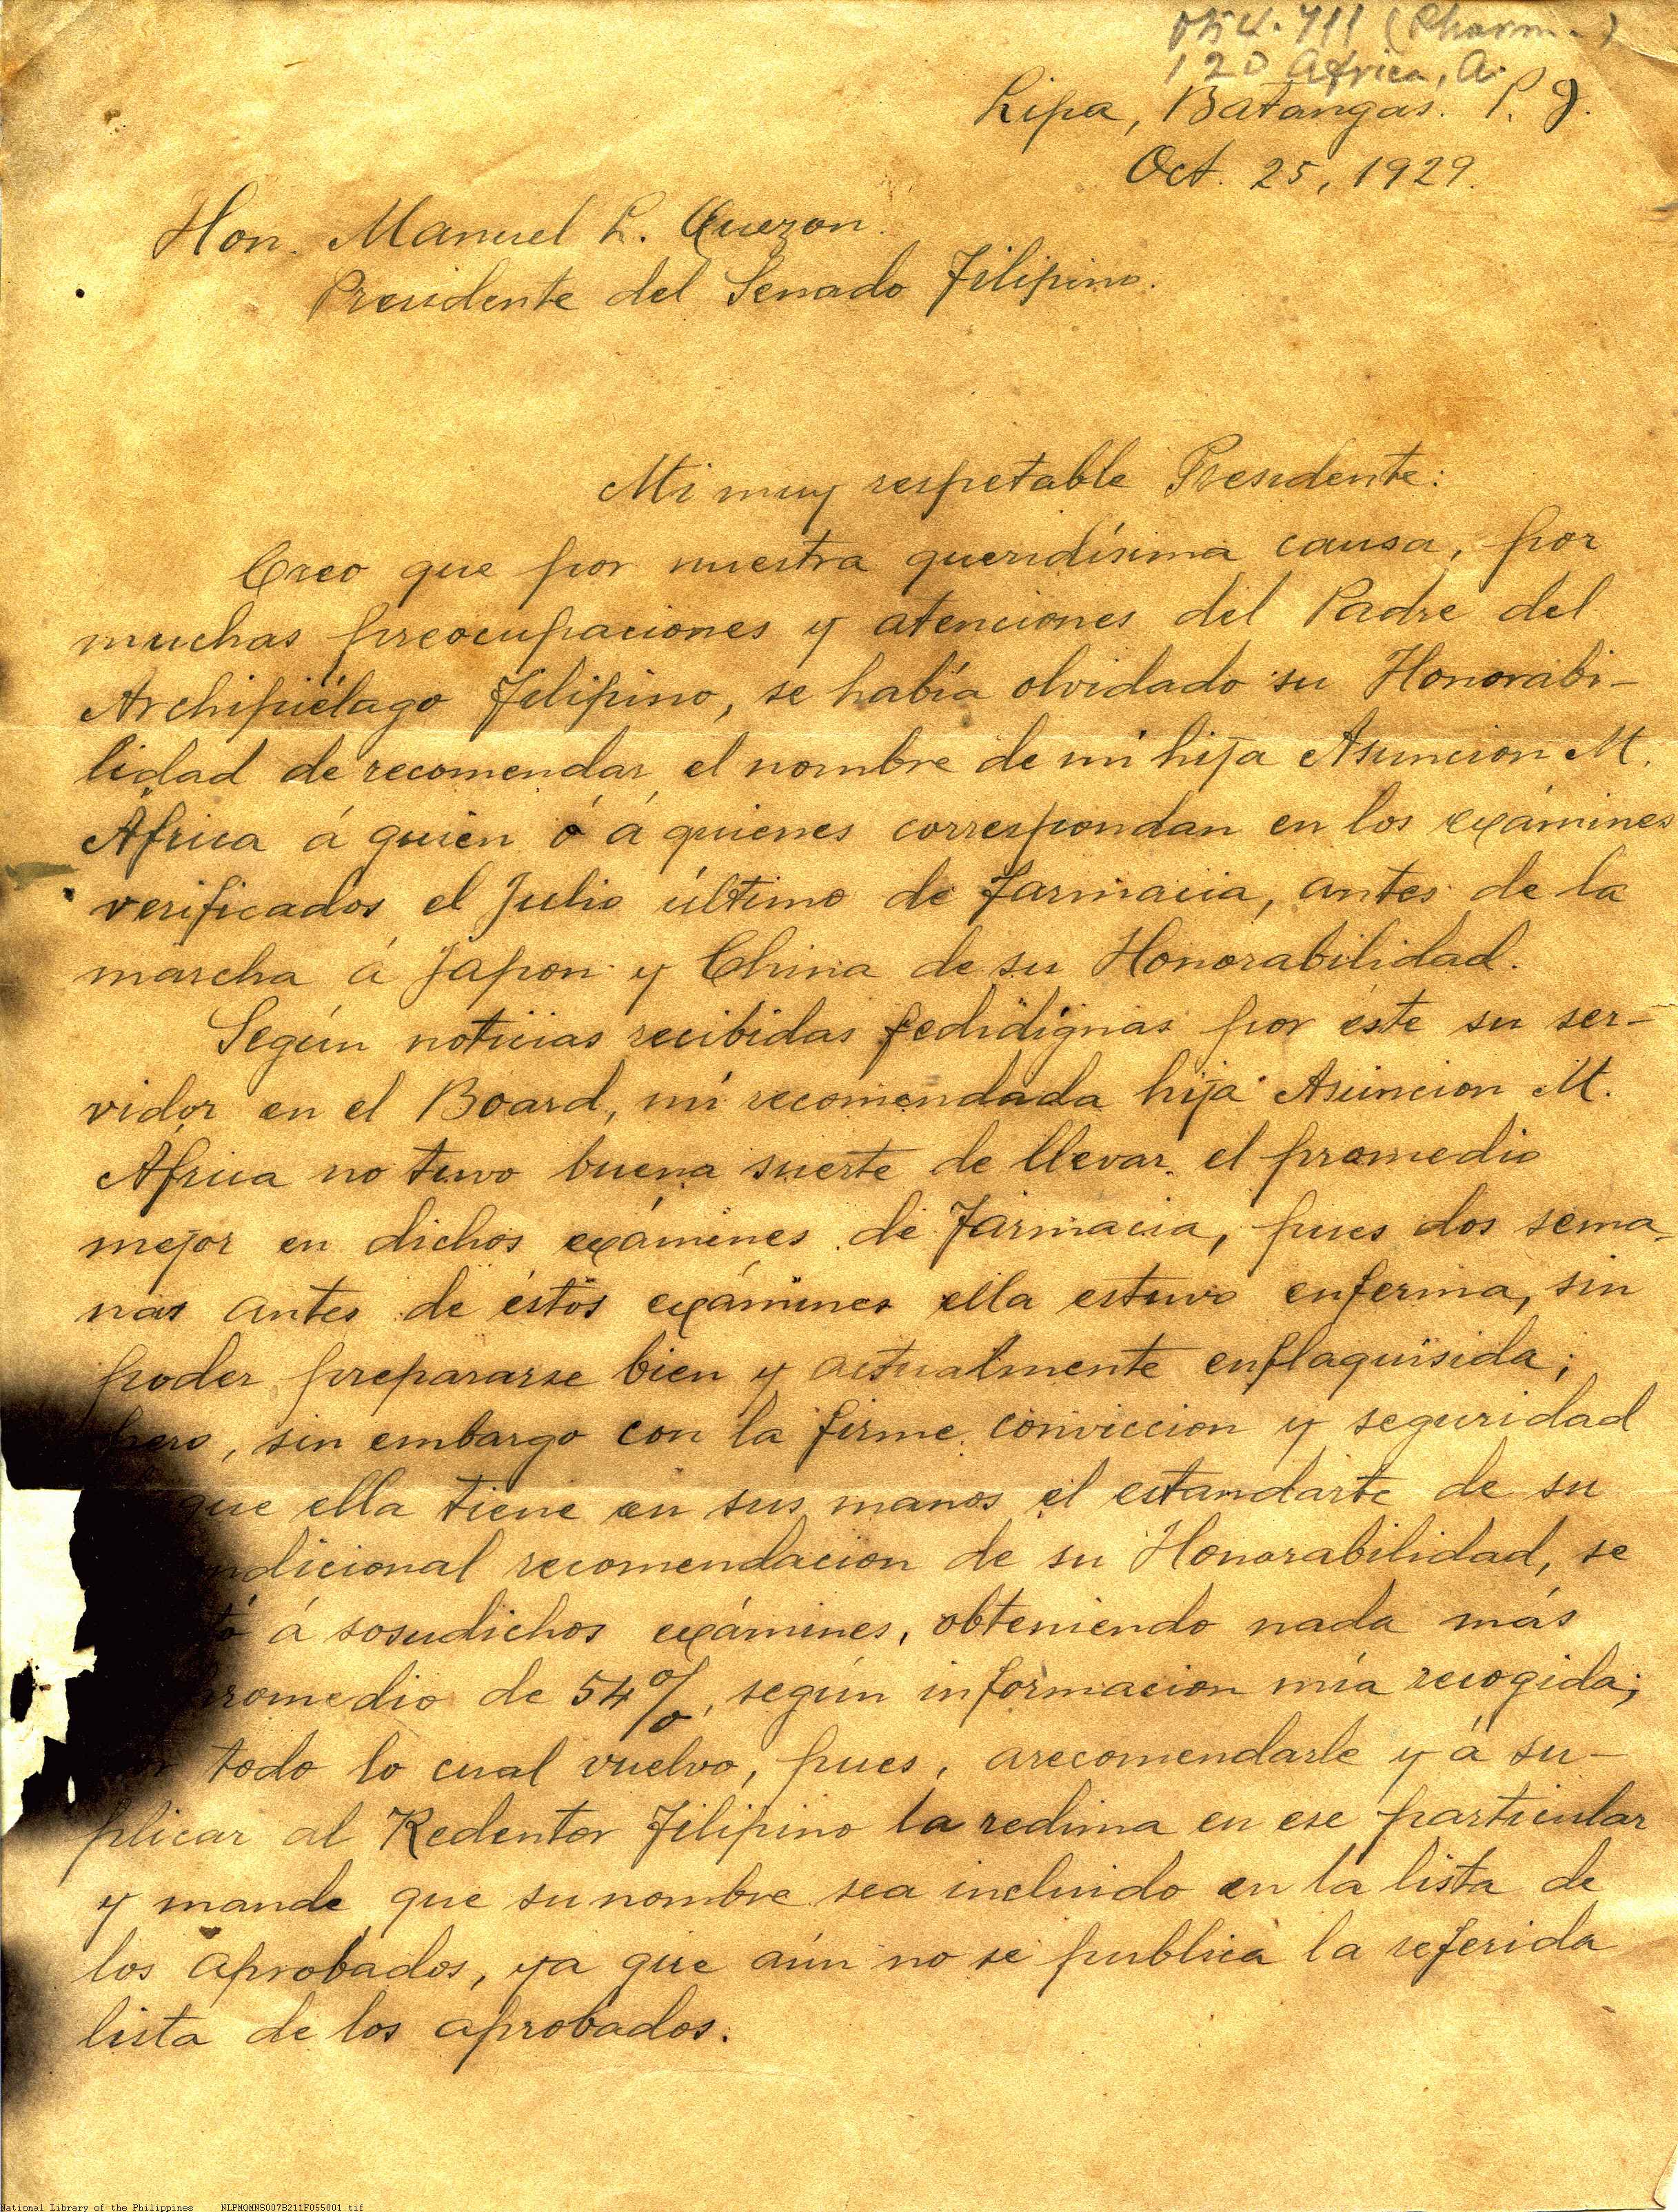 711 (Pharm.)
120 Africa, A.
Lipa, Batangas. P. I.
Oct. 25, 1929.
Hon. Manuel L. Quezon.
Presidente del Senado Filipino.
Mi muy respetable Presidente:
Creo que por nuestra queridísima causa, por
muchas preocupaciones y atenciones del Padre del
Archipiélago Filipino, se había olvidado su Honorabi-
lidad de recomendar el nombre de mi hija Asuncion M.
África á quién ó á quienes correspondan en los exámines
verificados el Julio último de Farmacia, antes de la
marcha á Japon y China de su Honorabilidad.
Según noticias recibidas fedidignas por éste su ser-
vidor en el Board, mi recomendada hija Asuncion M.
África no tuvo buena suerte de llevar el promedio
mejor en dichos exámenes de Farmacia, pues dos sema-
nas antes de éstos exámines ella estuvo enferma, sin
poder prepararse bien y actualmente enflaquisida;
pero, sin embargo con la firme conviccion y seguridad
que ella tiene en sus manos el estandarte de su
ndicional recomendacion de su Honorabilidad, se
tó á sosudichos exámines, obteniendo nada más
romedio de 54%, según informacion mía recogida;
todo lo cual vuelvo, pues, arecomendarle y á su-
plicar al Redentor Filipino la redima en ese particular
y mande que su nombre sea incluido en la lista de
los aprobados, ya que aún no se publica la referida
lista de los aprobados.
National Library of the Philippines NLPMQMNS007B211F055001.tif